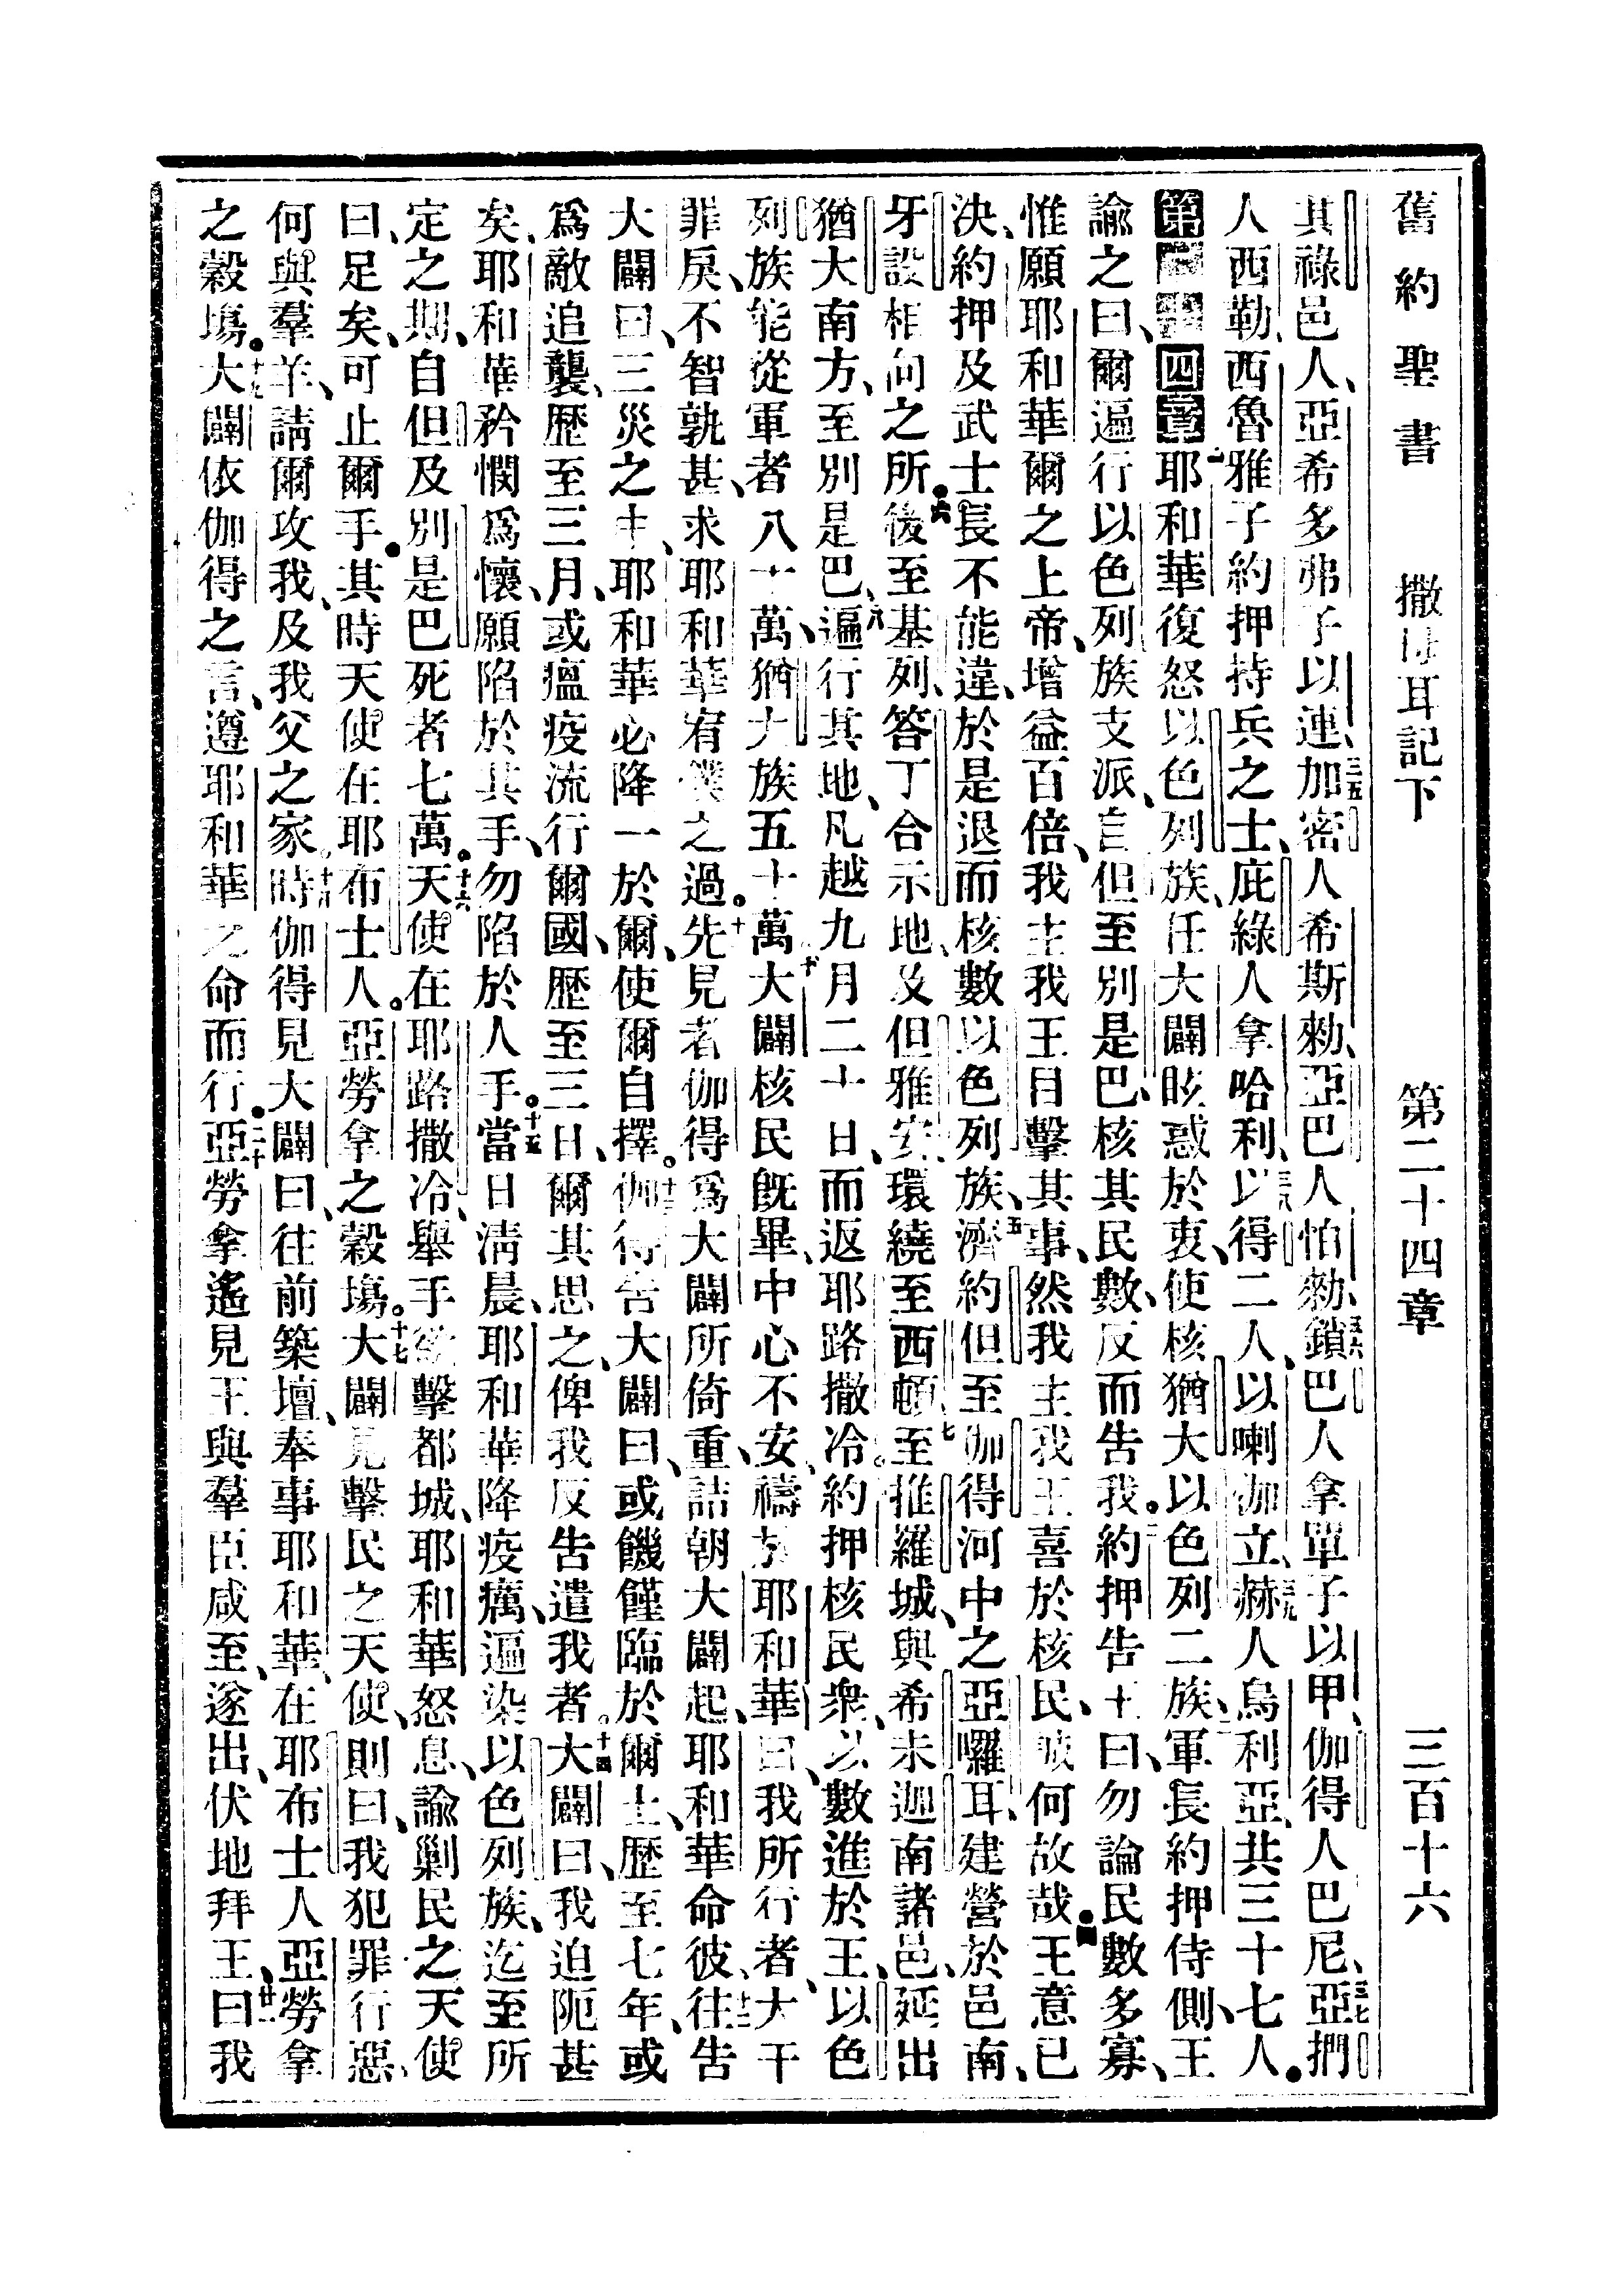 舊約聖書 撒母耳記下 第二十四章 三百十六
其祿邑人、亞希多弗子以連、三五加密人希斯勑、亞巴人怕勑、三六鎖巴人拿單子以甲、伽得人巴尼、三七亞捫
人西勒、西魯雅子約押持兵之士、庇綠人拿哈利、三八以得二人、以喇伽立、三九赫人烏利亞、共三十七人。
第二十四章 一耶和華復怒以色列族、任大闢眩惑於衷、使核猶大以色列二族、二軍長約押侍側、王
諭之曰、爾遍行以色列族支派、自但至別是巴、核其民數、反而告我。三約押告王曰、勿論民數多寡、
惟願耶和華爾之上帝、增益百倍、我主我王目擊其事、然我主我王喜於核民、誠何故哉。四王意已
決、約押及武士長不能違、於是退而核數以色列族、五濟約但至伽得河中之亞囉耳、建營於邑南、
牙設相向之所。六後至基列、答丁合示地、及但雅安、環繞至西頓、七至推羅城、與希未迦南諸邑、延出
猶大南方、至別是巴、八遍行其地、凡越九月二十日、而返耶路撒冷。九約押核民衆、以數進於王、以色
列族能從軍者八十萬、猶大族五十萬。十大闢核民既畢、中心不安、禱於耶和華曰、我所行者、大干
罪戾、不智孰甚、求耶和華宥僕之過。十一先見者伽得爲大闢所倚重、詰朝大闢起、耶和華命彼、十二往告
大闢曰、三災之中、耶和華必降一於爾、使爾自擇。十三伽得告大闢曰、或饑饉臨於爾土、歷至七年、或
爲敵追襲、歷至三月、或瘟疫流行爾國、歷至三日、爾其思之、俾我反告遣我者。十四大闢曰、我迫阨甚
矣、耶和華矜憫爲懷、願陷於其手、勿陷於人手。十五當日清晨、耶和華降疫癘、遍染以色列族、迄至所
定之期、自但及別是巴死者七萬。十六天使在耶路撒冷、舉手欲擊都城、耶和華怒息、諭剿民之天使
曰、足矣、可止爾手。其時天使在耶布士人。亞勞拿之穀塲。十七大闢見擊民之天使、則曰、我犯罪行惡、
何與羣羊、請爾攻我、及我父之家。十八時伽得見大闢曰、往前築壇、奉事耶和華、在耶布士人亞勞拿
之穀塲。十九大闢依伽得之言、遵耶和華之命而行。二十亞勞拿遙見王與羣臣咸至、遂出、伏地拜王、廿一曰我